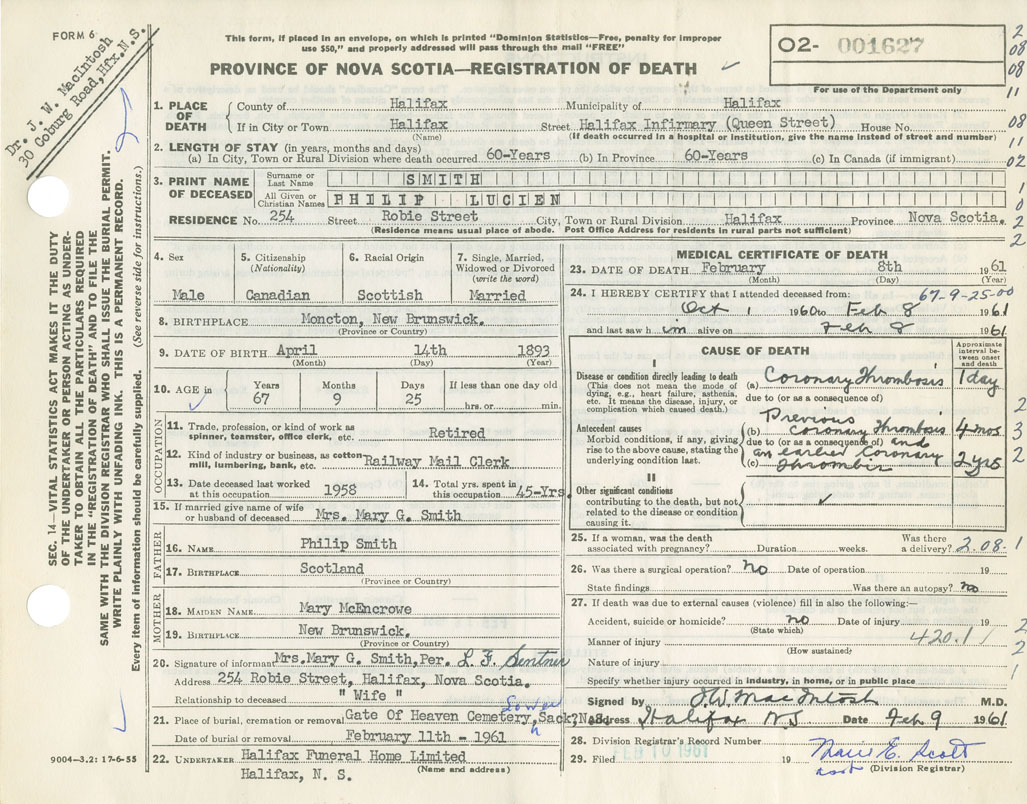 FORM 6
Dr. J. W. MacIntosh
30 Coburg Road, Hfx. N.S.
This form, if placed in an envelope, on which is printed "Dominion Statistics—Free, penalty for improper
use $50," and properly addressed will pass through the mail "FREE"
PROVINCE OF NOVA SCOTIA—REGISTRATION OF DEATH
O2- 001627
For use of the Department only
2
08
08
11
08
11
02
1
0
2
2
1. PLACE OF DEATH
County of Halifax Municipality of Halifax
If in City or Town Halifax Street Halifax Infirmary (Queen Street) House No.
(Name) (If death occurred in a hospital or institution, give the name instead of street and number)
2. LENGTH OF STAY (in years, months and days)
(a) In City, Town or Rural Division where death occurred 60-Years (b) In Province 60-Years (c) In Canada (if immigrant)
3. PRINT NAME OF DECEASED
Surname or Last Name SMITH
All Given or Christian Names PHILIP LUCIEN
RESIDENCE No. 254 Street Robie Street City, Town or Rural Division Halifax Province Nova Scotia.
(Residence means usual place of abode. Post Office Address for residents in rural parts not sufficient)
4. Sex
Male
5. Citizenship
(Nationality)
Canadian
6. Racial Origin
Scottish
7. Single, Married,
Widowed or Divorced
(write the word)
Married
8. BIRTHPLACE Moncton, New Brunswick.
(Province or Country)
9. DATE OF BIRTH April 14th 1893
(Month) (Day) (Year)
10. AGE in
Years Months Days If less than one day old
67 9 25 hrs. or min.
OCCUPATION
11. Trade, profession, or kind of work as
spinner, teamster, office clerk, etc. Retired
12. Kind of industry or business, as cotton
mill, lumbering, bank, etc. Railway Mail Clerk
13. Date deceased last worked
at this occupation 1958
14. Total yrs. spent in
this occupation 45-Yrs.
15. If married give name of wife
or husband of deceased Mrs. Mary G. Smith
FATHER
16. NAME Philip Smith
17. BIRTHPLACE Scotland
(Province or Country)
MOTHER
18. MAIDEN NAME Mary McEncrowe
19. BIRTHPLACE New Brunswick.
(Province or Country)
20. Signature of informant Mrs. Mary G. Smith, Per. L. F. Sentner
Address 254 Robie Street, Halifax, Nova Scotia.
Relationship to deceased " Wife "
21. Place of burial, cremation or removal Gate Of Heaven Cemetery, Sack? N.S.
Date of burial or removal February 11th - 1961
22. UNDERTAKER Halifax Funeral Home Limited
Halifax, N. S. (Name and address)
9004—3.2: 17-6-55
MEDICAL CERTIFICATE OF DEATH
23. DATE OF DEATH February 8th 1961
(Month) (Day) (Year)
24. I HEREBY CERTIFY that I attended deceased from: 67-9-25-00
Oct 1 1960 to Feb 8 1961
and last saw him alive on Feb 8 1961
CAUSE OF DEATH
Approximate interval between onset and death
I
Disease or condition directly leading to death
(This does not mean the mode of dying, e.g., heart failure, asthenia, etc. It means the disease, injury, or complication which caused death.)
(a) Coronary Thrombosis 1 day
due to (or as a consequence of)
Antecedent causes
Morbid conditions, if any, giving rise to the above cause, stating the underlying condition last.
Previous
(b) Coronary Thrombosis 4 mos
due to (or as a consequence of) and
an earlier Coronary
(c) Thrombis 2 yrs
II
Other significant conditions
contributing to the death, but not related to the disease or condition causing it.
2
3
2
25. If a woman, was the death
associated with pregnancy? Duration weeks. Was there
a delivery? 2.08.1
26. Was there a surgical operation? no Date of operation 19
State findings Was there an autopsy? no
27. If death was due to external causes (violence) fill in also the following:—
Accident, suicide or homicide? no Date of injury 19
(State which)
420.1
Manner of injury
(How sustained)
Nature of injury
Specify whether injury occurred in industry, in home, or in public place
2
2
1
Signed by J. W. MacIntosh M.D.
Address Halifax NS Date Feb 9 1961
28. Division Registrar's Record Number
FEB 10 1961
29. Filed 19 Marie E. Scott
asst (Division Registrar)
SEC. 14—VITAL STATISTICS ACT MAKES IT THE DUTY
OF THE UNDERTAKER OR PERSON ACTING AS UNDER-
TAKER TO OBTAIN ALL THE PARTICULARS REQUIRED
IN THE "REGISTRATION OF DEATH" AND TO FILE THE
SAME WITH THE DIVISION REGISTRAR WHO SHALL ISSUE THE BURIAL PERMIT.
WRITE PLAINLY WITH UNFADING INK. THIS IS A PERMANENT RECORD.
Every item of information should be carefully supplied. (See reverse side for instructions.)